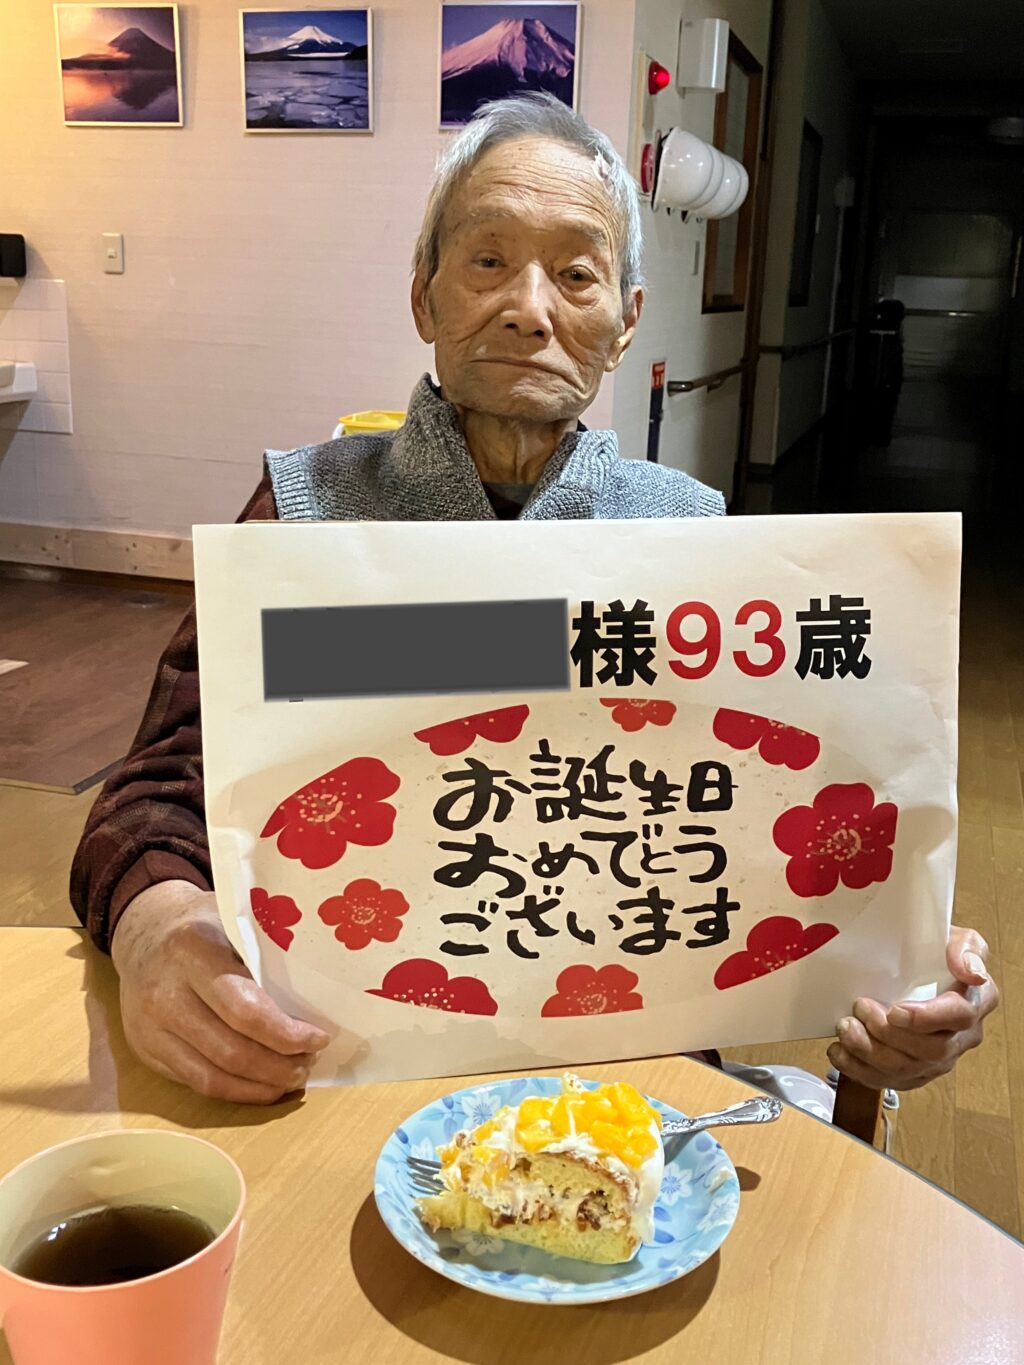 様93歳
お誕生日
おめでとう
ございます